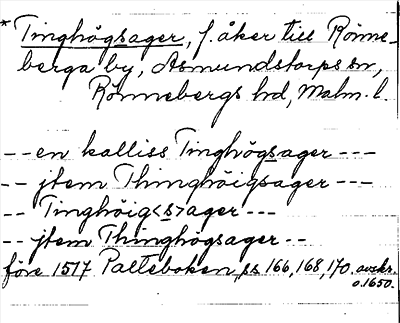 * Tinghögsager, f. åker till Rönne-
berga by, Asmundstorps sn,
Rönnebergs hd, Malm. l.
-- en kalliss Tinghögsager ---
-- jtem Thinghöigsager ---
-- Tinghöig<s>ager ---
-- jtem Thinghögsager --
före 1517 Palteboken, ss 166, 168, 170. avskr.
o. 1650.